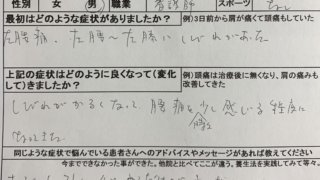 性別 女 男 職業 看護師 スポーツ なし
最初はどのような症状がありましたか？ 例)3日前から肩が痛くて頭痛もしていた
左腰痛、左腰〜左膝にしびれがあった
上記の症状はどのように良くなって(変化して)きましたか？ 例)頭痛は治療後に無くなり、肩の痛みも改善してきた
しびれがかるくなって、腰痛を少し感じる程度に
なってきた
同じような症状で悩んでいる患者さんへのアドバイスやメッセージがあれば教えてください
今までできなかった事ができた。他院と比べてここが違う。養生法を実践してみて等々。